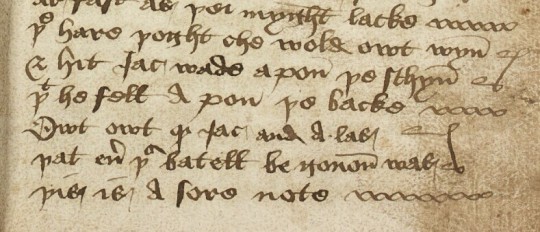 as fast as þei myȝght lacke
þe hare þoȝght che wold owt wyn
& hit Jac wade apon þe schyn
þt he fell A pon þe backe
Owt owt qd Jac and a las
þat eu̅ þs batell be gonon was
þis is A sore note